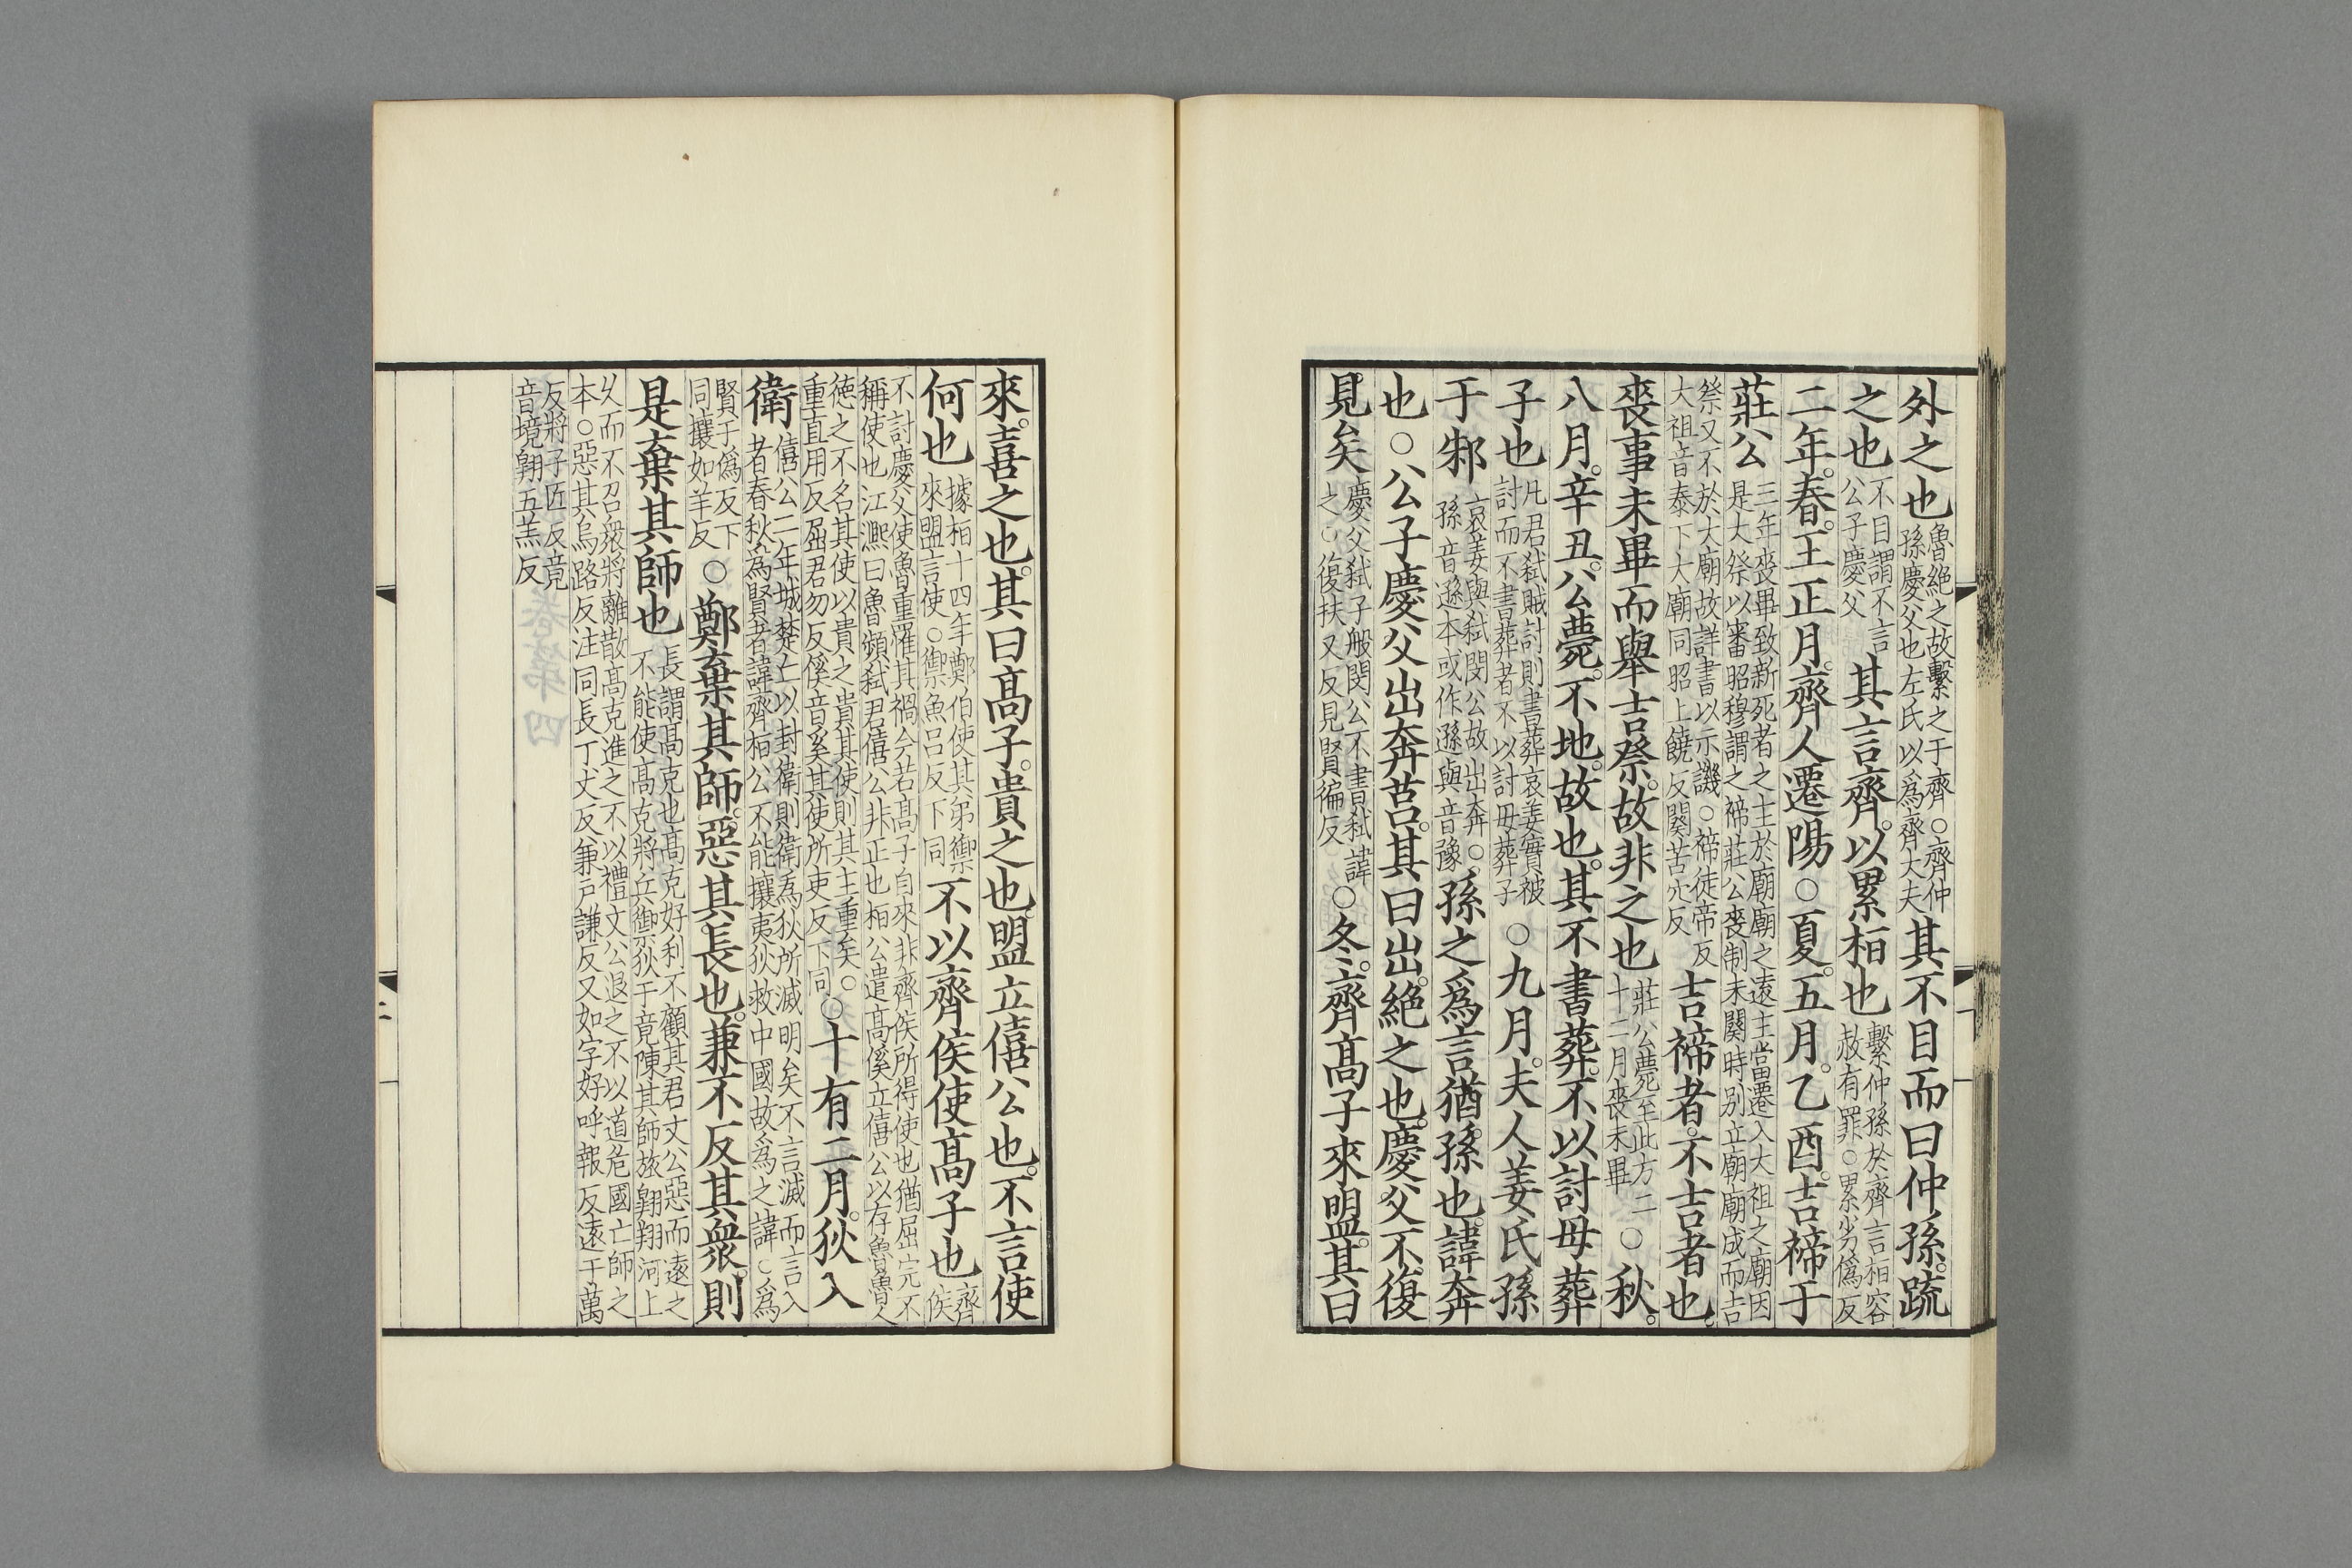 外之也魯絶之故繫之于齊○齊仲孫慶父也左氏以爲齊大夫其不目而曰仲孫疏
之也不目謂不言公子慶父其言齊以累桓也繫仲孫於齊言相容赦有罪○累劣僞反
二年春王正月齊人遷陽○夏五月乙酉吉禘于
莊公三年喪畢致新死者之主於廟廟之遠主當遷入大祖之廟因是大祭以審昭穆謂之禘莊公喪制未闋時別立廟廟成而吉
祭又不於大廟故詳書以示譏○禘徒帝反大祖音泰下大廟同昭上饒反闋苦穴反吉禘者不吉者也
喪事未畢而舉吉祭故非之也莊公薨至此方二十二月喪未畢○秋
八月辛丑公薨不地故也其不書葬不以討母葬
子也凡君弑賊討則書葬哀姜實被討而不書葬者不以討母葬子○九月夫人姜氏孫
于邾哀姜與弑閔公故出奔○孫音遜本或作遜與音豫孫之爲言猶孫也諱奔
也○公子慶父出奔莒其曰出絶之也慶父不復
見矣慶父弑子般閔公不書弑諱之○復扶又反見賢徧反○冬齊高子來盟其曰
來喜之也其曰高子貴之也盟立僖公也不言使
何也據桓十四年鄭伯使其弟禦來盟言使○禦魚吕反下同不以齊侯使高子也齊侯
不討慶父使魯重罹其禍今若高子自來非齊侯所得使也猶屈完不稱使也江熙曰魯頻弑君僖公非正也桓公遣高傒立僖公以存魯魯人
德之不名其使以貴之貴其使則其主重矣○重直用反屈君勿反傒音奚其使所吏反下同○十有二月狄入
衛僖公二年城楚丘以封衛則衛爲狄所滅明矣不言滅而言入者春秋爲賢者諱齊桓公不能攘夷狄救中國故爲之諱○爲
賢于僞反下同攘如羊反○鄭棄其師惡其長也兼不反其衆則
是棄其師也長謂高克也高克好利不顧其君文公惡而遠之不能使高克將兵禦狄于竟陳其師旅翱翔河上
乆而不召衆將離散高克進之不以禮文公退之不以道危國亡師之本○惡其烏路反注同長丁丈反兼戸謙反又如字好呼報反遠于萬
反將子匠反竟音境翱五羔反
二